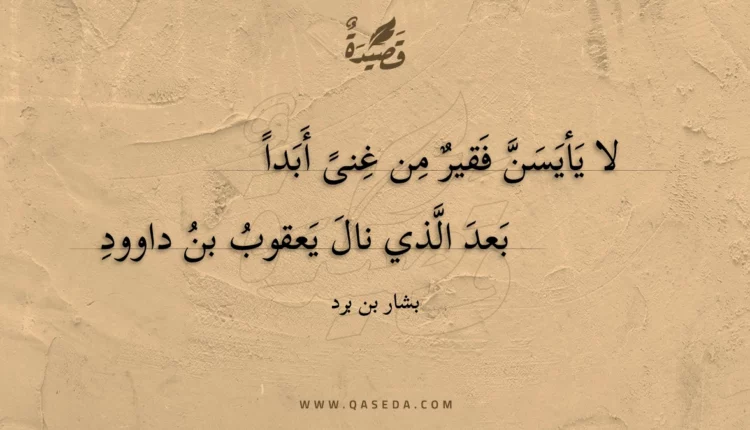 قَصِيْدَةٌ
لا يَأيَسَنَّ فَقيرٌ مِن غِنىً أَبَداً
بَعدَ الَّذي نالَ يَعقوبُ بنُ داوودِ
بشار بن برد
WWW.QASEDA.COM